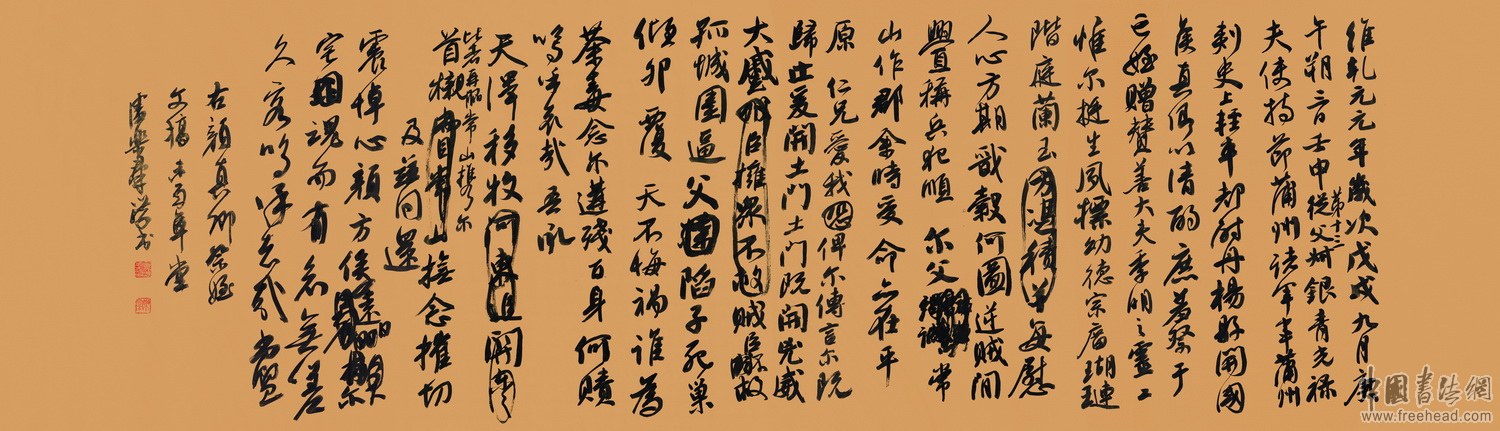 維乾元元年歲次戊戌九月庚
午朔三日壬申從父叔銀青光祿
第十三
夫使持節蒲州諸軍事蒲州
刺史上輕車都尉丹楊縣開國
侯真卿以清酌庶羞祭于
亡姪贈贊善大夫季明之靈曰
惟爾挺生夙標幼德宗廟瑚璉
階庭蘭玉方憑積善每慰
人心方期戩穀何圖逆賊閒
釁稱兵犯順 爾父 常
山作郡余時受命亦在平
原 仁兄愛我恐俾爾傳言爾既
歸止爰開土門土門既開兇威
大蹙賊臣擁眾不救賊臣擁救
孤城圍逼父陷子死巢
傾卵覆 天不悔禍誰為
荼毒念爾遘殘百身何贖
嗚呼哀哉吾承
天澤移牧河東近河關
比者再陷常山攜爾
首櫬亟自常山撫念摧切
及茲同還
震悼心顏方俟遠日爾
宅兆魂而有知無嗟
久客嗚呼哀哉尚饗
右顏真卿祭姪
文稿
學書
中國書法網
www.freehead.com